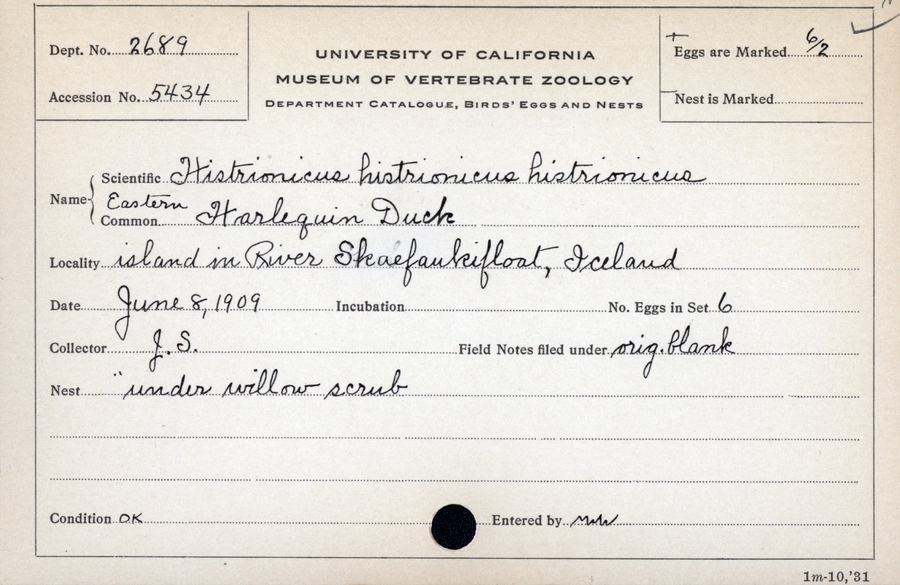 Dept. No. 2689
Accession No. 5434
UNIVERSITY OF CALIFORNIA
MUSEUM OF VERTEBRATE ZOOLOGY
DEPARTMENT CATALOGUE, BIRDS' EGGS AND NESTS
Eggs are Marked 6/2
Nest is Marked
Name Scientific Histrionicus histrionicus histrionicus
Eastern
Common Harlequin Duck
Locality island in River Skaefaukifloat, Iceland
Date June 8, 1909 Incubation No. Eggs in Set 6
Collector J. S. Field Notes filed under orig. blank
Nest "under willow scrub
Condition OK Entered by
1m-10,'31